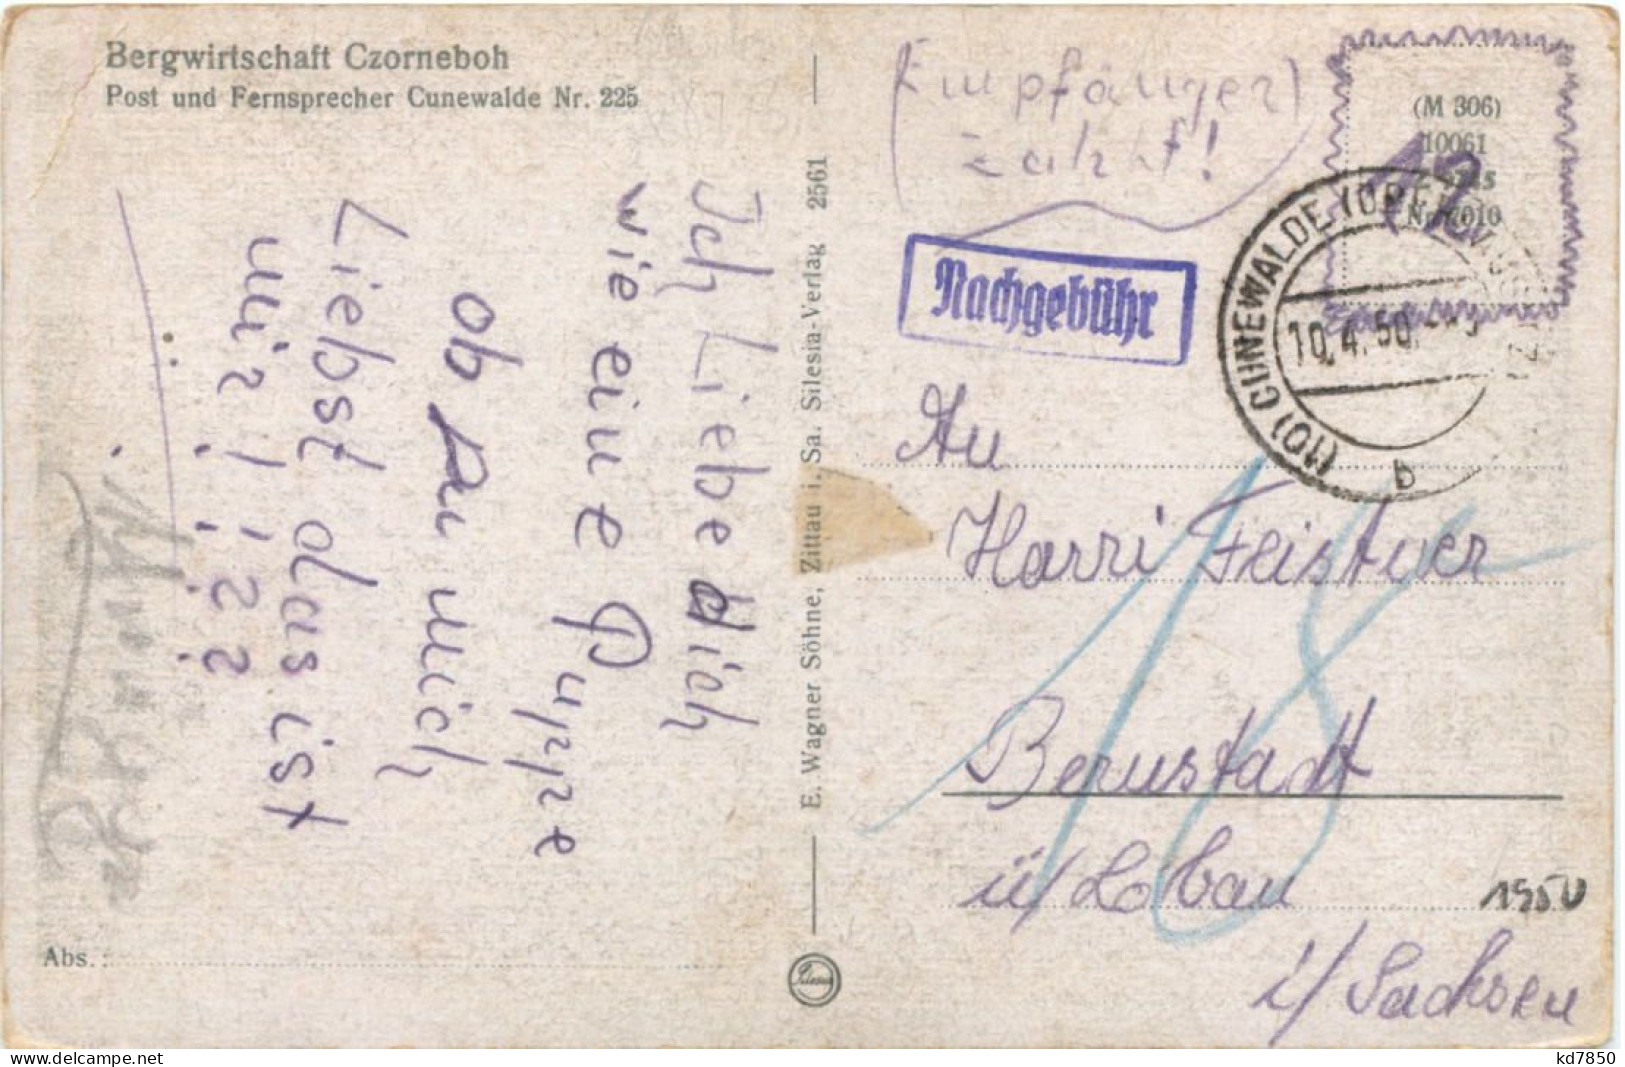 Bergwirtschaft Czorneboh
Post und Fernsprecher Cunewalde Nr. 225
Ich Liebe dich
wie eine Puppe
ob du mich
Liebst das ist
mir ! ! ? ?
Abs.:
E. Wagner Söhne, Zittau i. Sa. Silesia-Verlag 2561
(Empfänger)
zahlt!
(M 306)
10061
12
Nachgebühr
(10) CUNEWALDE
10.4.50.
b
An
Harri Feistner
18
Bernstadt
ü/ Löbau
1950
i/ Sachsen
kd7850